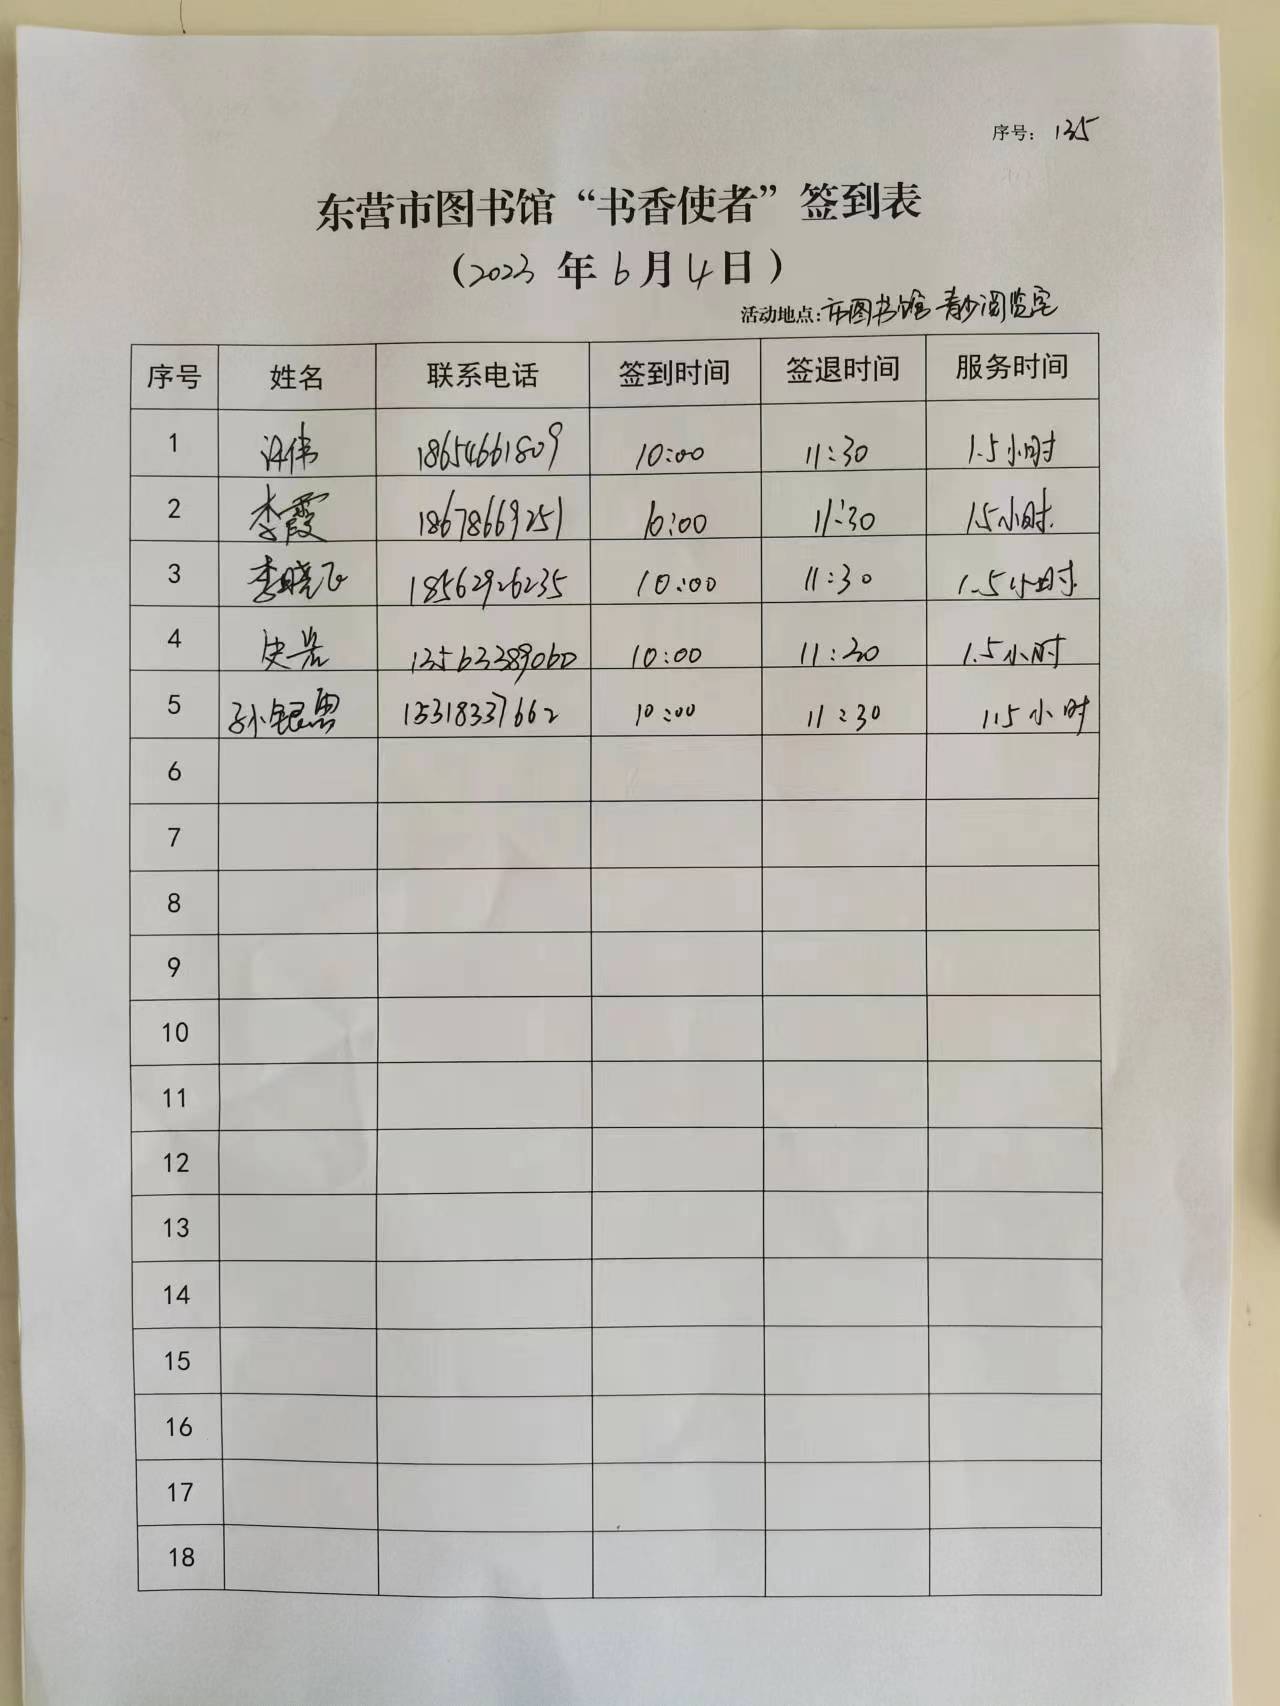 序号: 135
东营市图书馆“书香使者”签到表
(2023 年 6 月 4 日)
活动地点:市图书馆 青少阅览室
序号 姓名 联系电话 签到时间 签退时间 服务时间
1 许伟 18654661809 10:00 11:30 1.5小时
2 李霞 18678669251 10:00 11:30 1.5小时
3 李晓飞 18562926235 10:00 11:30 1.5小时
4 史岩 13563389060 10:00 11:30 1.5小时
5 孙银 15318337662 10:00 11:30 1.5小时
6
7
8
9
10
11
12
13
14
15
16
17
18